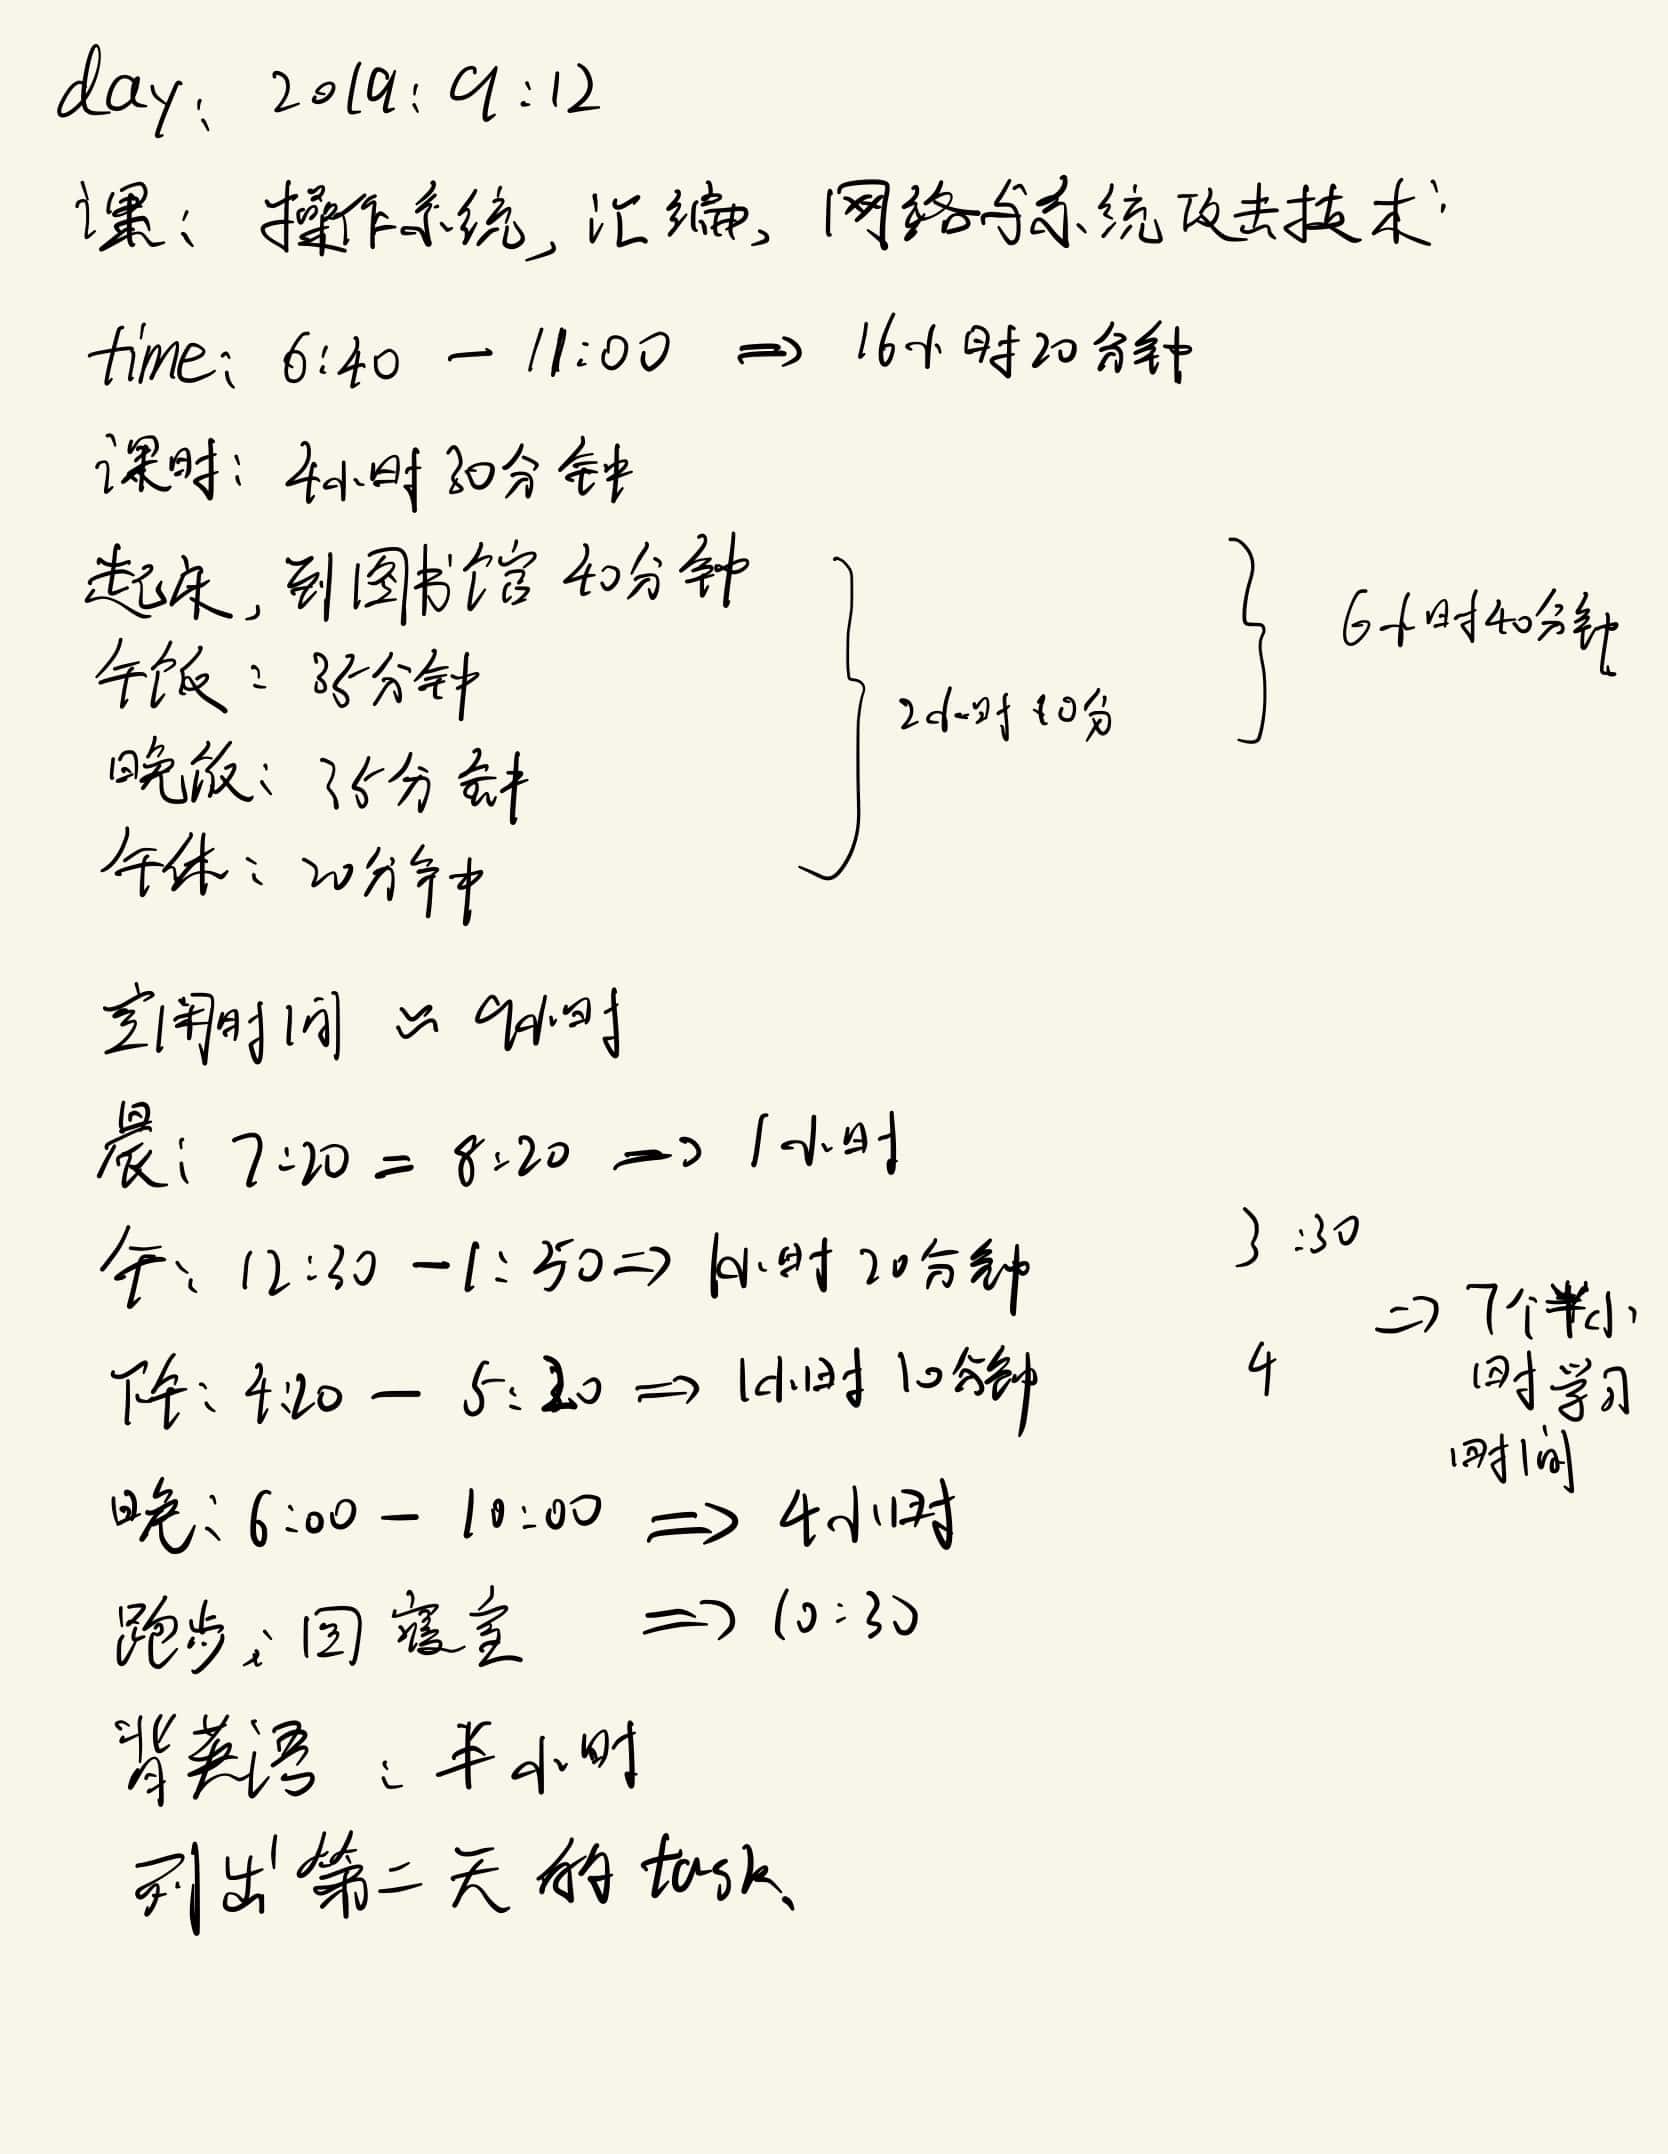 day: 2019:9:12
课: 操作系统, 汇编, 网络与系统攻击技术
time: 6:40 — 11:00 => 16小时20分钟
课时: 4小时30分钟
起床, 到图书馆 40分钟
午饭: 35分钟
晚饭: 35分钟
午休: 20分钟
2小时10分
6小时40分钟
空闲时间 ≈ 9小时
晨: 7:20 = 8:20 => 1小时
午: 12:30 — 1:50 => 1小时20分钟
下午: 4:20 — 5:30 => 1小时10分钟
晚: 6:00 — 10:00 => 4小时
3:30
4
=> 7个半小
时学习
时间
跑步; 回寝室 => 10:30
背英语: 半小时
列出第二天的task、